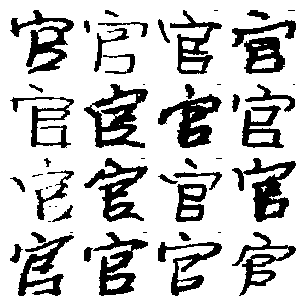 官官官官
官官官官
官官官官
官官官官